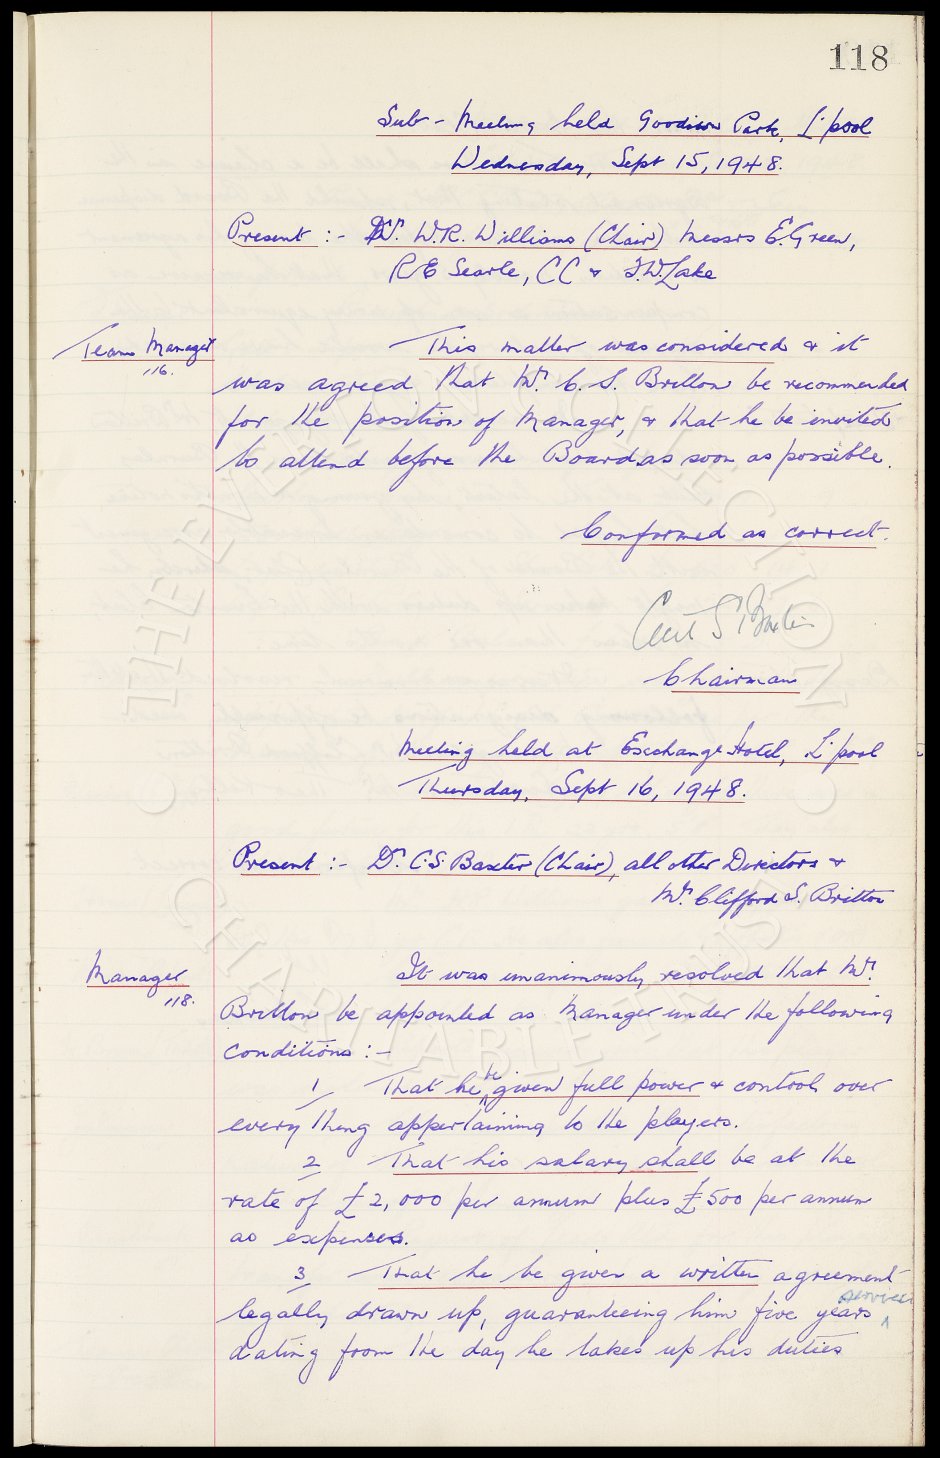 118
Sub-Meeting held Goodison Park, L'pool
Wednesday, Sept 15, 1948.
Present :- Mr. W.R. Williams (Chair) Messrs E. Green,
R E Searle, C C & T.W. Lake
Team Manager
116.
This matter was considered & it
was agreed that Mr. C. S. Britton be recommended
for the position of Manager, & that he be invited
to attend before the Board as soon as possible.
Confirmed as correct.
Cecil S Baxter
Chairman
Meeting held at Exchange Hotel, L'pool
Thursday, Sept 16, 1948.
Present :- Dr. C.S. Baxter (Chair), all other Directors &
Mr. Clifford S. Britton
Manager
118.
It was unanimously resolved that Mr.
Britton be appointed as Manager under the following
conditions :-
1 That he be given full power & control over
every thing appertaining to the players.
2 That his salary shall be at the
rate of £2,000 per annum plus £500 per annum
as expenses.
3 That he be given a written agreement
legally drawn up, guaranteeing him five years service
dating from the day he takes up his duties
THE EVERTON COLLECTION
CHARITABLE TRUST